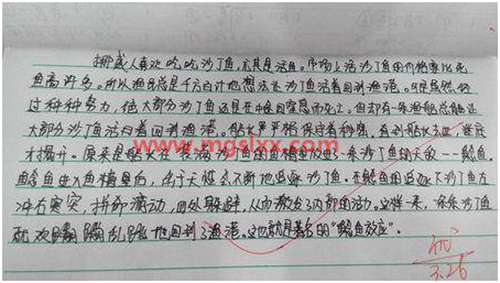 挪威人喜欢吃沙丁鱼,尤其是活鱼。市场上活沙丁鱼的价格要比死
鱼高许多。所以渔民总是千方百计地想法让沙丁鱼活着回到渔港。可是虽然经
过种种努力,绝大部分沙丁鱼还是在中途因窒息而死亡。但却有一条渔船总能让
大部分沙丁鱼活着回到渔港。船长严格保守着秘密,直到船长去世,谜底
才揭开。原来是船长在装满沙丁鱼的鱼槽里放进了一条沙丁鱼的天敌——鲶鱼。
鲶鱼进入鱼槽里后,由于天性会不断地追逐沙丁鱼。在鲶鱼的追逐下沙丁鱼左
冲右突,拼命游动,四处躲避,从而激发了内部的活力。这样一来,一条条沙丁鱼
就欢蹦乱跳地回到了渔港。这也就是著名的“鲶鱼效应”。
www.mgslxx.com
优
3.26